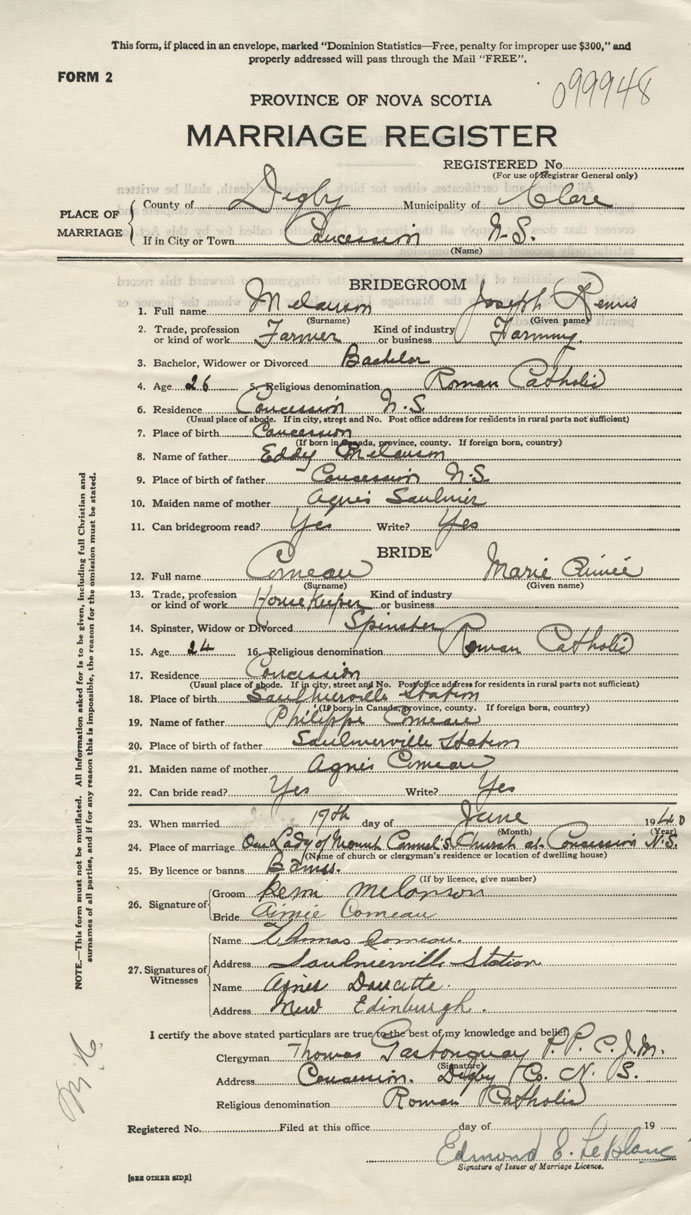 This form, if placed in an envelope, marked "Dominion Statistics—Free, penalty for improper use $300," and
properly addressed will pass through the Mail "FREE".
FORM 2
099948
PROVINCE OF NOVA SCOTIA
MARRIAGE REGISTER
REGISTERED No.
(For use of Registrar General only)
PLACE OF MARRIAGE
County of Digby Municipality of Clare
If in City or Town Concession N.S.
(Name)
BRIDEGROOM
1. Full name Melanson Joseph Remis
(Surname) (Given name)
2. Trade, profession or kind of work Farmer Kind of industry or business Farming
3. Bachelor, Widower or Divorced Bachelor
4. Age 26 5. Religious denomination Roman Catholic
6. Residence Concession N.S.
(Usual place of abode. If in city, street and No. Post office address for residents in rural parts not sufficient)
7. Place of birth Concession
(If born in Canada, province, county. If foreign born, country)
8. Name of father Eddy Melanson
9. Place of birth of father Concession N.S.
10. Maiden name of mother Agnès Saulnier
11. Can bridegroom read? Yes Write? Yes
BRIDE
12. Full name Comeau Marie Aimée
(Surname) (Given name)
13. Trade, profession or kind of work Housekeeper Kind of industry or business
14. Spinster, Widow or Divorced Spinster
15. Age 24 16. Religious denomination Roman Catholic
17. Residence Concession
(Usual place of abode. If in city, street and No. Post office address for residents in rural parts not sufficient)
18. Place of birth Saulnierville Station
(If born in Canada, province, county. If foreign born, country)
19. Name of father Philippe Comeau
20. Place of birth of father Saulnierville Station
21. Maiden name of mother Agnès Comeau
22. Can bride read? Yes Write? Yes
23. When married 19th day of June 1940
(Month) (Year)
24. Place of marriage Our Lady of Mount Carmel's Church at Concession N.S.
(Name of church or clergyman's residence or location of dwelling house)
25. By licence or banns Banns.
(If by licence, give number)
26. Signature of
Groom Remi Melanson
Bride Aimée Comeau
27. Signatures of Witnesses
Name Thomas Comeau.
Address Saulnierville Station
Name Agnes Doucette
Address New Edinburgh.
I certify the above stated particulars are true to the best of my knowledge and belief,
Clergyman Thomas Gastonguay P.P. C.J.M.
(Signature)
Address Concession. Digby Co. N. S.
Religious denomination Roman Catholic
Registered No. Filed at this office day of 19
Edmond E. LeBlanc
Signature of Issuer of Marriage Licence.
[SEE OTHER SIDE]
NOTE.—This form must not be mutilated. All information asked for is to be given, including full Christian and
surnames of all parties, and if for any reason this is impossible, the reason for the omission must be stated.